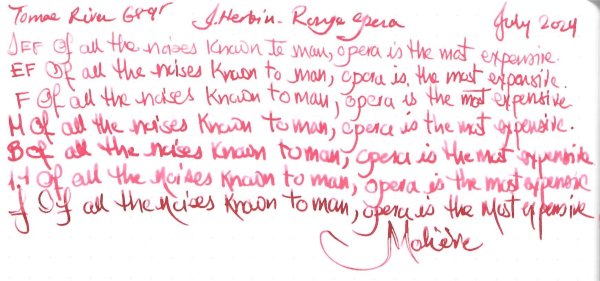 Tomoe River 68gr J.Herbin - Rouge Opera July 2024
JEF Of all the noises known to man, opera is the most expensive.
EF Of all the noises known to man, opera is the most expensive.
F Of all the noises known to man, opera is the most expensive
M Of all the noises known to man, opera is the most expensive.
B Of all the noises known to man, opera is the most expensive
1.1 Of all the noises known to man, opera is the most expensive
f Of all the noises known to man, opera is the most expensive
Molière